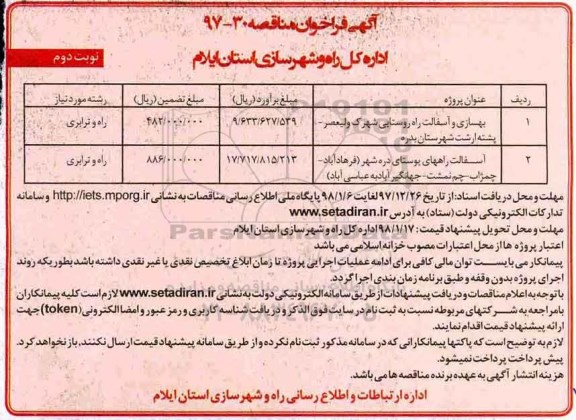 آگهی فراخوان مناقصه ۳۰-۹۷
اداره کل راه و شهرسازی استان ایلام
نوبت دوم
ردیف عنوان پروژه مبلغ برآورد (ریال) مبلغ تضمین (ریال) رشته مورد نیاز
۱ بهسازی و آسفالت راه روستایی شهرک ولیعصر- ۹/۶۳۳/۶۲۷/۵۳۹ ۴۸۲/۰۰۰/۰۰۰ راه و ترابری
پشته ارشت شهرستان بدره
۲ آسفالت راههای روستای دره شهر (فرهادآباد- ۱۷/۷۱۷/۸۱۵/۲۱۳ ۸۸۶/۰۰۰/۰۰۰ راه و ترابری
چمژاب-چم نمشت-جهانگیرآباد به عباسی آباد)
مهلت و محل دریافت اسناد: از تاریخ ۹۷/۱۲/۲۶ لغایت ۹۸/۱/۶ پایگاه ملی اطلاع رسانی مناقصات به نشانی http://iets.mporg.ir و سامانه
تدارکات الکترونیکی دولت (ستاد) به آدرس www.setadiran.ir
مهلت و محل تحویل پیشنهاد قیمت: ۹۸/۱/۱۷ اداره کل راه و شهرسازی استان ایلام
اعتبار پروژه ها از محل اعتبارات مصوب خزانه اسلامی می باشد
پیمانکار می بایست توان مالی کافی برای ادامه عملیات اجرایی پروژه تا زمان ابلاغ تخصیص نقدی یا غیر نقدی داشته باشد بطوریکه روند
اجرای پروژه بدون وقفه و طبق برنامه زمان بندی اجرا گردد.
با توجه به اعلام مناقصات و دریافت پیشنهادات از طریق سامانه الکترونیکی دولت به نشانی www.setadiran.ir لازم است کلیه پیمانکاران
با مراجعه به شرکتهای مربوطه نسبت به ثبت نام در سایت فوق الذکر و دریافت شناسه کاربری و رمز عبور و امضا الکترونی (token) جهت
ارائه پیشنهاد قیمت اقدام نمایند.
لازم به توضیح است که پاکتها پیمانکارانی که در سامانه مذکور ثبت نام نکرده و از طریق سامانه پیشنهاد قیمت ارسال نکنند, باز نخواهد کرد.
پیش پرداخت پرداخت نمیشود.
هزینه انتشار آگهی به عهده برنده مناقصه ها می باشد.
اداره ارتباطات و اطلاع رسانی راه و شهرسازی استان ایلام